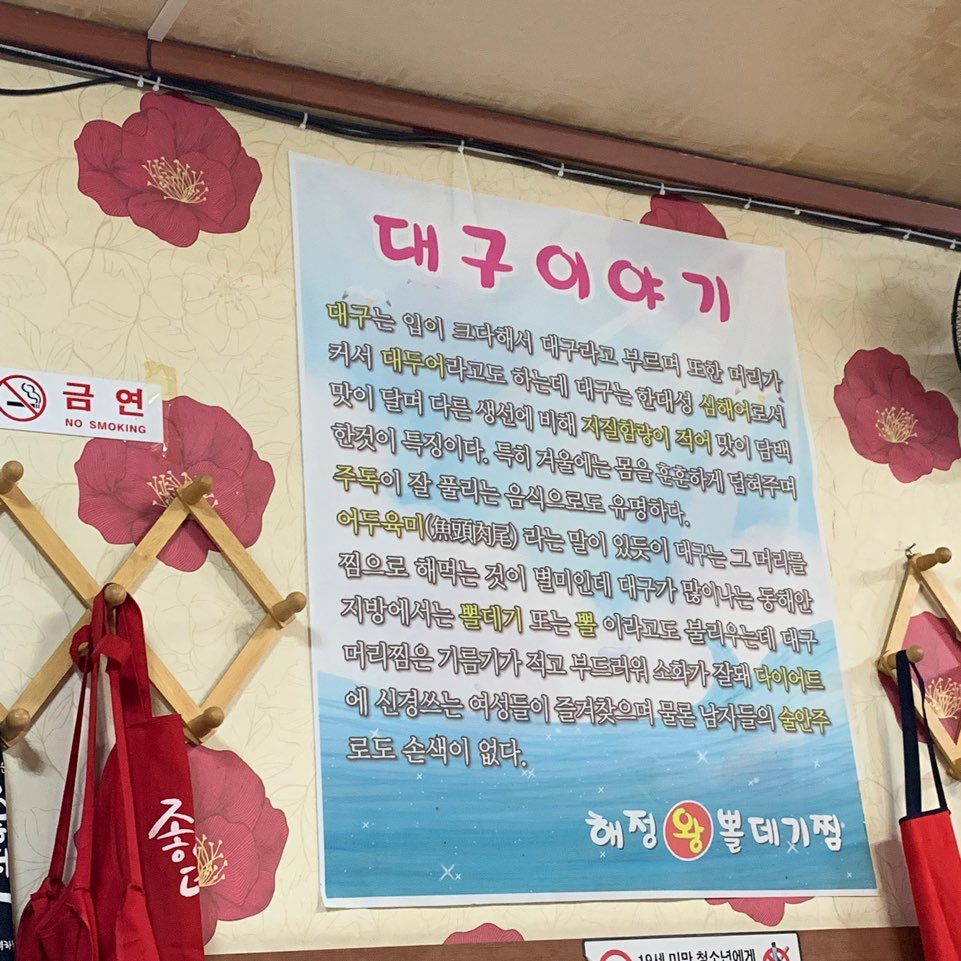 대구이야기
대구는 입이 크다해서 대구라고 부르며 또한 머리가
커서 대두어라고도 하는데 대구는 한대성 심해어로서
맛이 달며 다른 생선에 비해 지질함량이 적어 맛이 담백
한것이 특징이다. 특히 겨울에는 몸을 훈훈하게 덥혀주며
주독이 잘 풀리는 음식으로도 유명하다.
어두육미(魚頭肉尾) 라는 말이 있듯이 대구는 그 머리를
찜으로 해먹는 것이 별미인데 대구가 많이나는 동해안
지방에서는 뽈데기 또는 뽈 이라고도 불리우는데 대구
머리찜은 기름기가 적고 부드러워 소화가 잘돼 다이어트
에 신경쓰는 여성들이 즐겨찾으며 물론 남자들의 술안주
로도 손색이 없다.
해정왕뽈데기찜
금연
NO SMOKING
좋
19세 미만 청소년에게